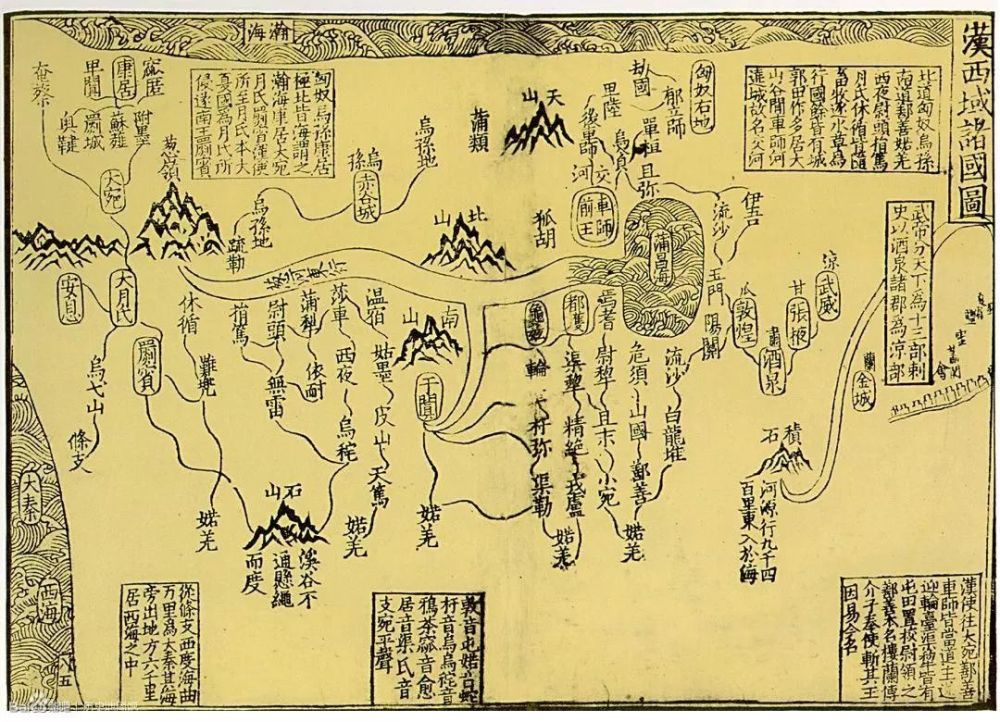 漢西域諸國圖
瀚海
北道匈奴烏孫
南道鄯善婼羌
西夜尉頭捐篤
月氏休循皆隨
畜牧逐水草爲
行國餘皆有城
郭田作多居大
山谷間車師河
遶城故名交河
武帝分天下爲十三部刺
史以酒泉諸郡爲涼部
漢使往大宛鄯善
車師皆當道主迎
屯田置校尉領之
鄯善本名樓蘭傅
介子奉使斬其王
因易名
匈奴右地
郁立師
劫國
卑陸
後車師
單桓
烏貪
且弥
天山
蒲類
交河
車師前王
狐胡
伊吾
流沙
玉門
陽關
蒲昌海
瓜
敦煌
肅
酒泉
甘
張掖
涼
武威
蘭
金城
積石
河源行九千四
百里東入於海
匈奴烏孫康居
極北皆海謂之
瀚海康居大宛
月氏罽賓漢使
所至月氏本大
夏國爲月氏所
侵遂南王罽賓
烏孫地
烏孫
赤谷城
烏孫地
疏勒
北山
葱嶺
葱河東行
窳匿
康居
卑闐
奄蔡
附墨
蘇薤
罽城
奧鞬
大宛
大月氏
安息
烏弋山
條支
罽賓
休循
難兜
婼羌
捐篤
尉頭
無雷
蒲犁
依耐
莎車
西夜
烏秅
温宿
姑墨
皮山
天篤
婼羌
南山
于闐
婼羌
龜茲
輪
扜弥
渠勒
都護
渠犂
精絶
戎盧
婼羌
焉耆
尉犂
且末
小宛
危須
山國
鄯善
婼羌
流沙
白龍堆
石山
溪谷不
通懸繩
而度
大秦
西海
敦音屯婼音蛇
扜音烏烏秅音
鴉茶窳音愈
居音渠氏音
支宛平聲
從條支西度海曲
万里爲大秦其海
旁出地方六千里
居西海之中